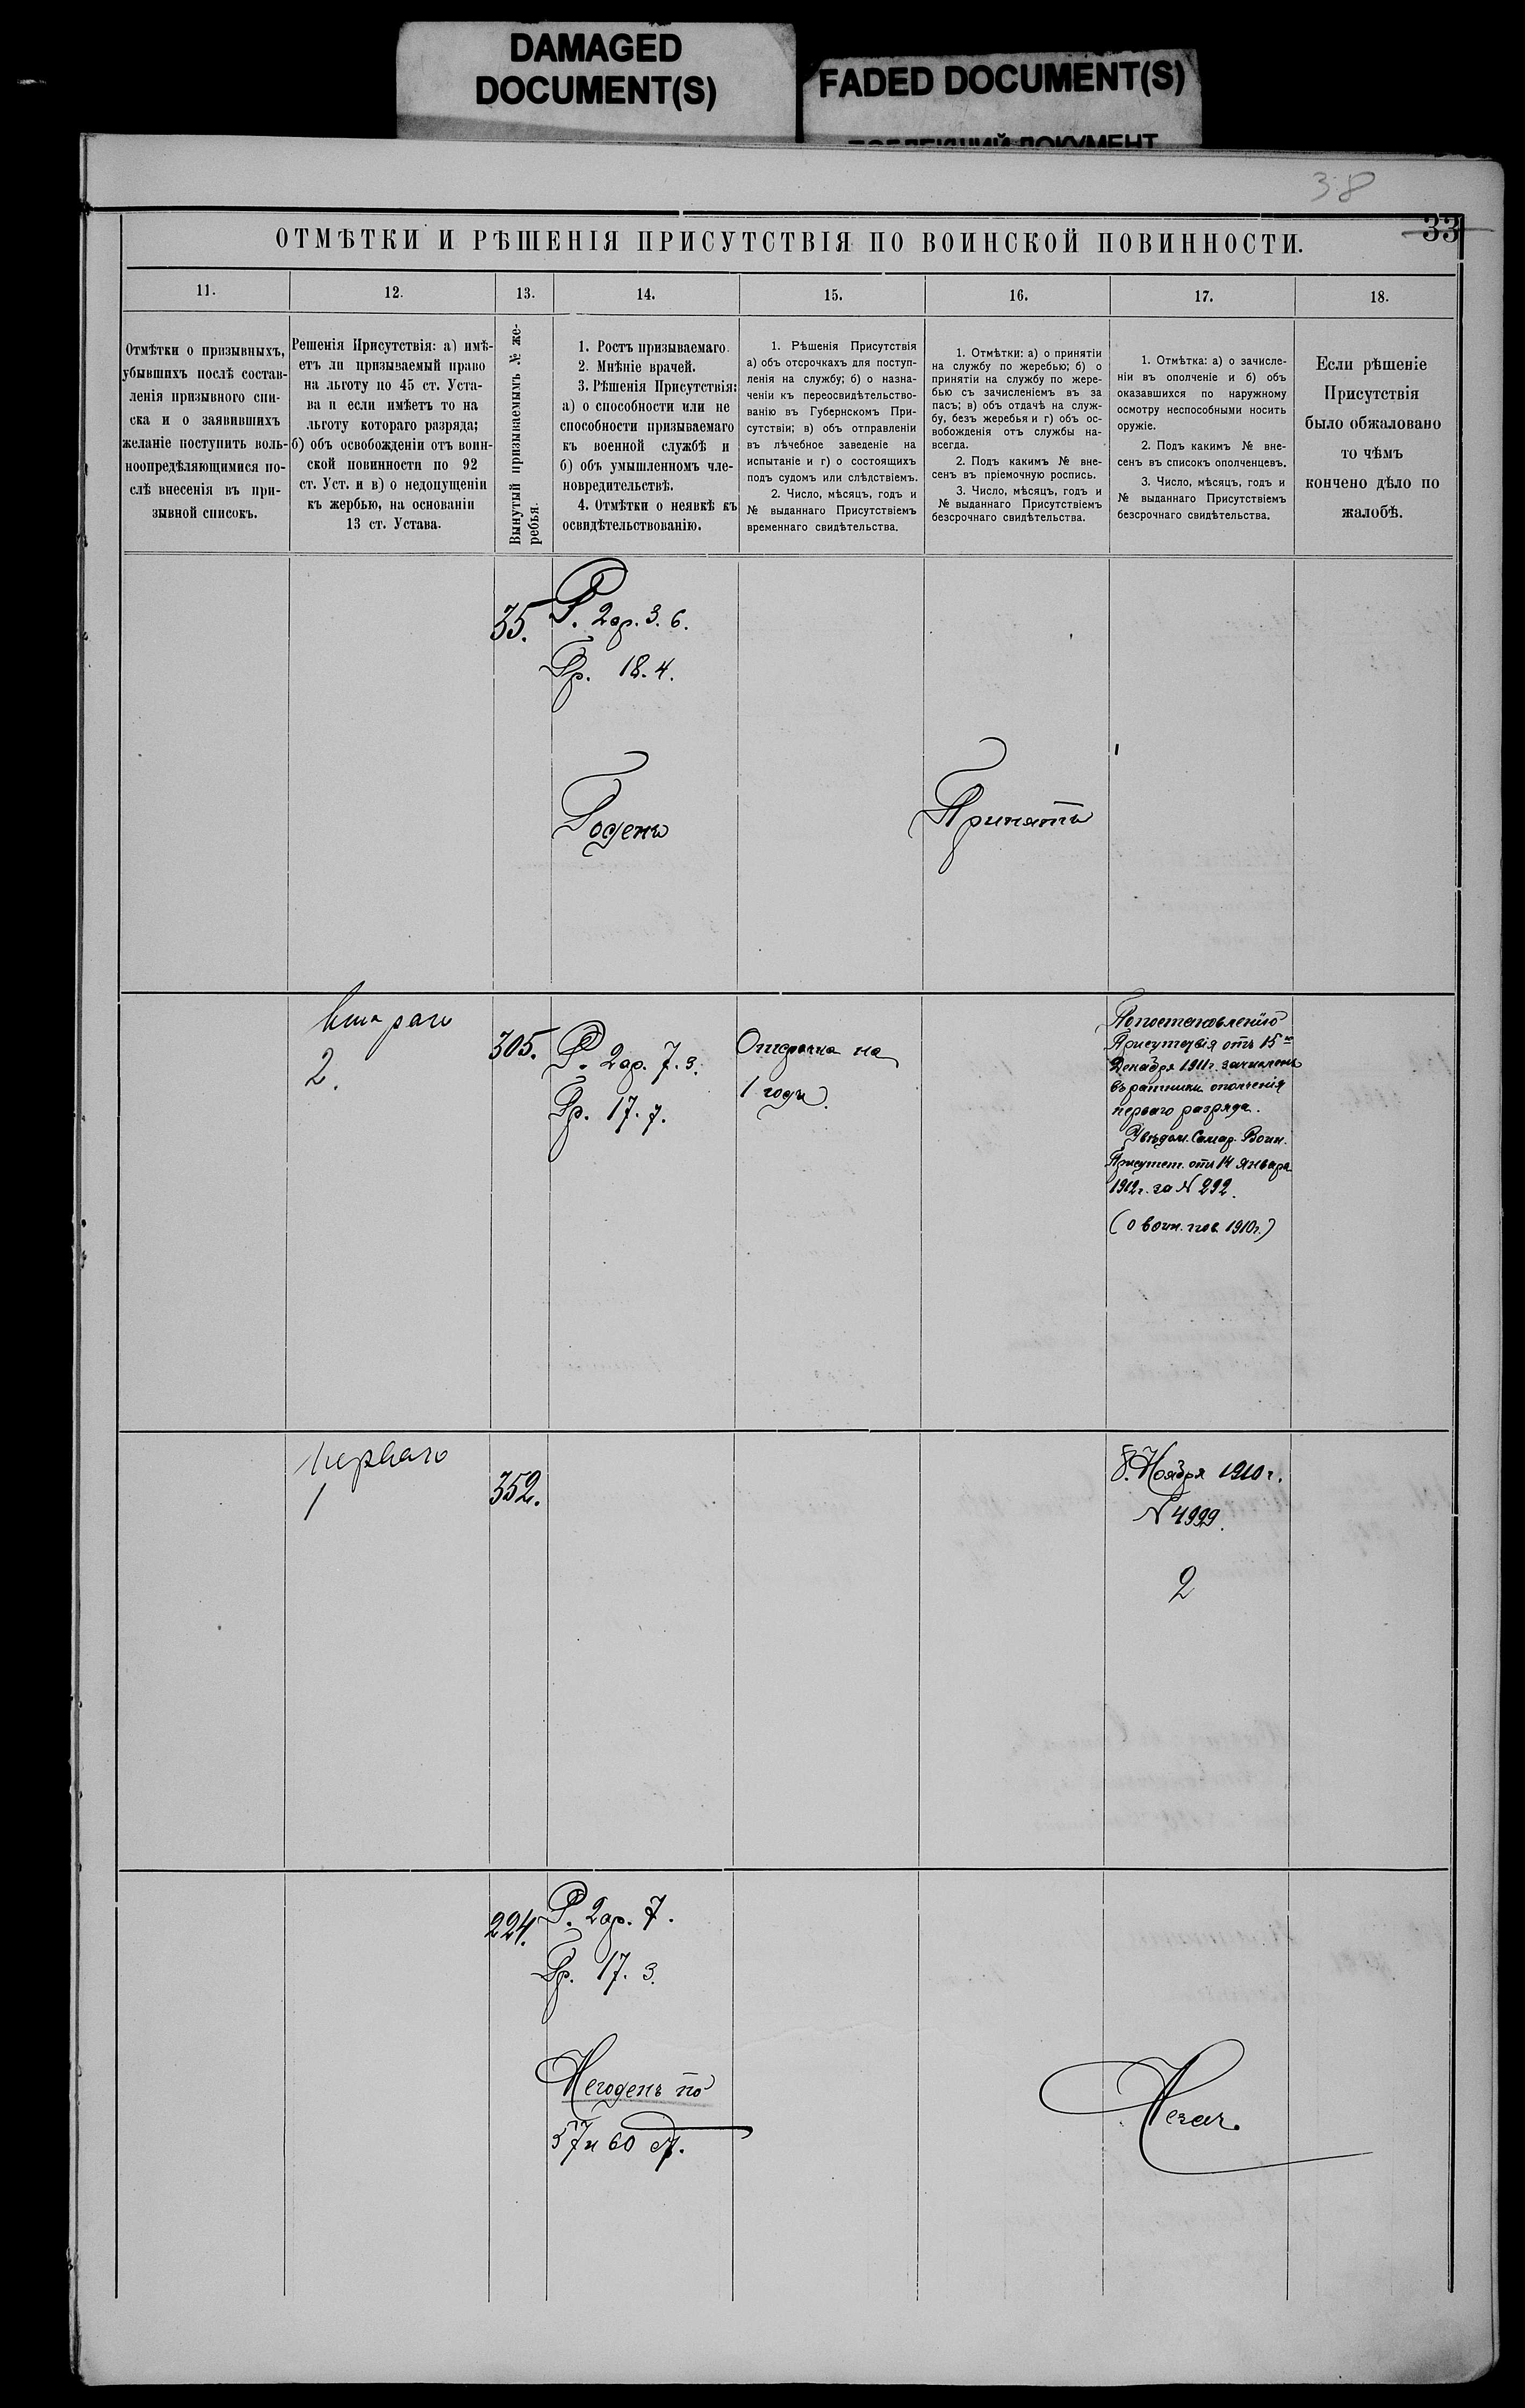 DAMAGED
DOCUMENT(S)
FADED DOCUMENT(S)
38
33
ОТМѢТКИ И РѢШЕНІЯ ПРИСУТСТВІЯ ПО ВОИНСКОЙ ПОВИННОСТИ.
11.
12.
13.
14.
15.
16.
17.
18.
Отмѣтки о призывныхъ,
убывшихъ послѣ состав-
ленія призывного спи-
ска и о заявившихъ
желаніе поступить воль-
ноопредѣляющимися по-
слѣ внесенія въ при-
зывной списокъ.
Решенія Присутствія: а) имѣ-
етъ ли призываемый право
на льготу по 45 ст. Уста-
ва и если имѣетъ то на
льготу котораго разряда;
б) объ освобожденіи отъ воин-
ской повинности по 92
ст. Уст. и в) о недопущеніи
къ жербью, на основаніи
13 ст. Устава.
Вынутый призываемымъ № же-
ребья.
1. Ростъ призываемаго.
2. Мнѣніе врачей.
3. Рѣшенія Присутствія:
а) о способности или не
способности призываемаго
къ военной службѣ и
б) объ умышленномъ чле-
новредительствѣ.
4. Отмѣтки о неявкѣ къ
освидѣтельствованію.
1. Рѣшенія Присутствія
а) объ отсрочкахъ для поступ-
ленія на службу; б) о назна-
ченіи къ переосвидѣтельство-
ванію въ Губернскомъ При-
сутствіи; в) объ отправленіи
въ лѣчебное заведеніе на
испытаніе и г) о состоящихъ
подъ судомъ или слѣдствіемъ.
2. Число, мѣсяцъ, годъ и
№ выданнаго Присутствіемъ
временнаго свидѣтельства.
1. Отмѣтки: а) о принятіи
на службу по жеребью; б) о
принятіи на службу по жере-
бью съ зачисленіемъ въ за
пасъ; в) объ отдачѣ на служ-
бу, безъ жеребья и г) объ ос-
вобожденія отъ службы на-
всегда.
2. Подъ какимъ № вне-
сенъ въ пріемочную роспись.
3. Число, мѣсяцъ, годъ и
№ выданнаго Присутствіемъ
безсрочнаго свидѣтельства.
1. Отмѣтка: а) о зачисле-
ніи въ ополченіе и б) объ
оказавшихся по наружному
осмотру неспособными носить
оружіе.
2. Подъ какимъ № вне-
сенъ въ списокъ ополченцевъ.
3. Число, мѣсяцъ, годъ и
№ выданнаго Присутствіемъ
безсрочнаго свидѣтельства.
Если рѣшеніе
Присутствія
было обжаловано
то чѣмъ
кончено дѣло по
жалобѣ.
35.
Р. 2 ар. 3. 6.
Гр. 18. 4.
Годенъ
Принятъ
втораго
2.
305.
Р. 2 ар. 7. 3.
Гр. 17. 7.
Отсрочка на
1 годъ.
По постановленію
Присутствія отъ 15го
Декабря 1911г. зачисленъ
въ ратники ополченія
перваго разряда.
Увѣдом. Самар. Воин.
Присутст. отъ 14 Января
1912г. за № 292.
(о воин. пов. 1910г.)
перваго
1
352.
8. Ноября 1910 г.
№ 4999.
2
224.
Р. 2 ар. 7.
Гр. 17. 3.
Негоденъ по
57 и 60 ст.
Незач.